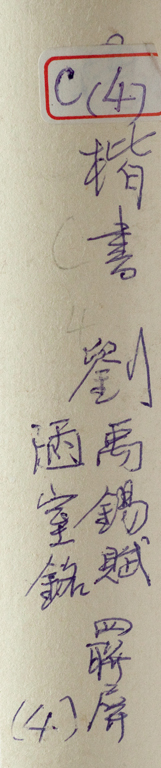 C(4)
楷書
劉禹錫賦 四聯屏
洒室銘
(4.)